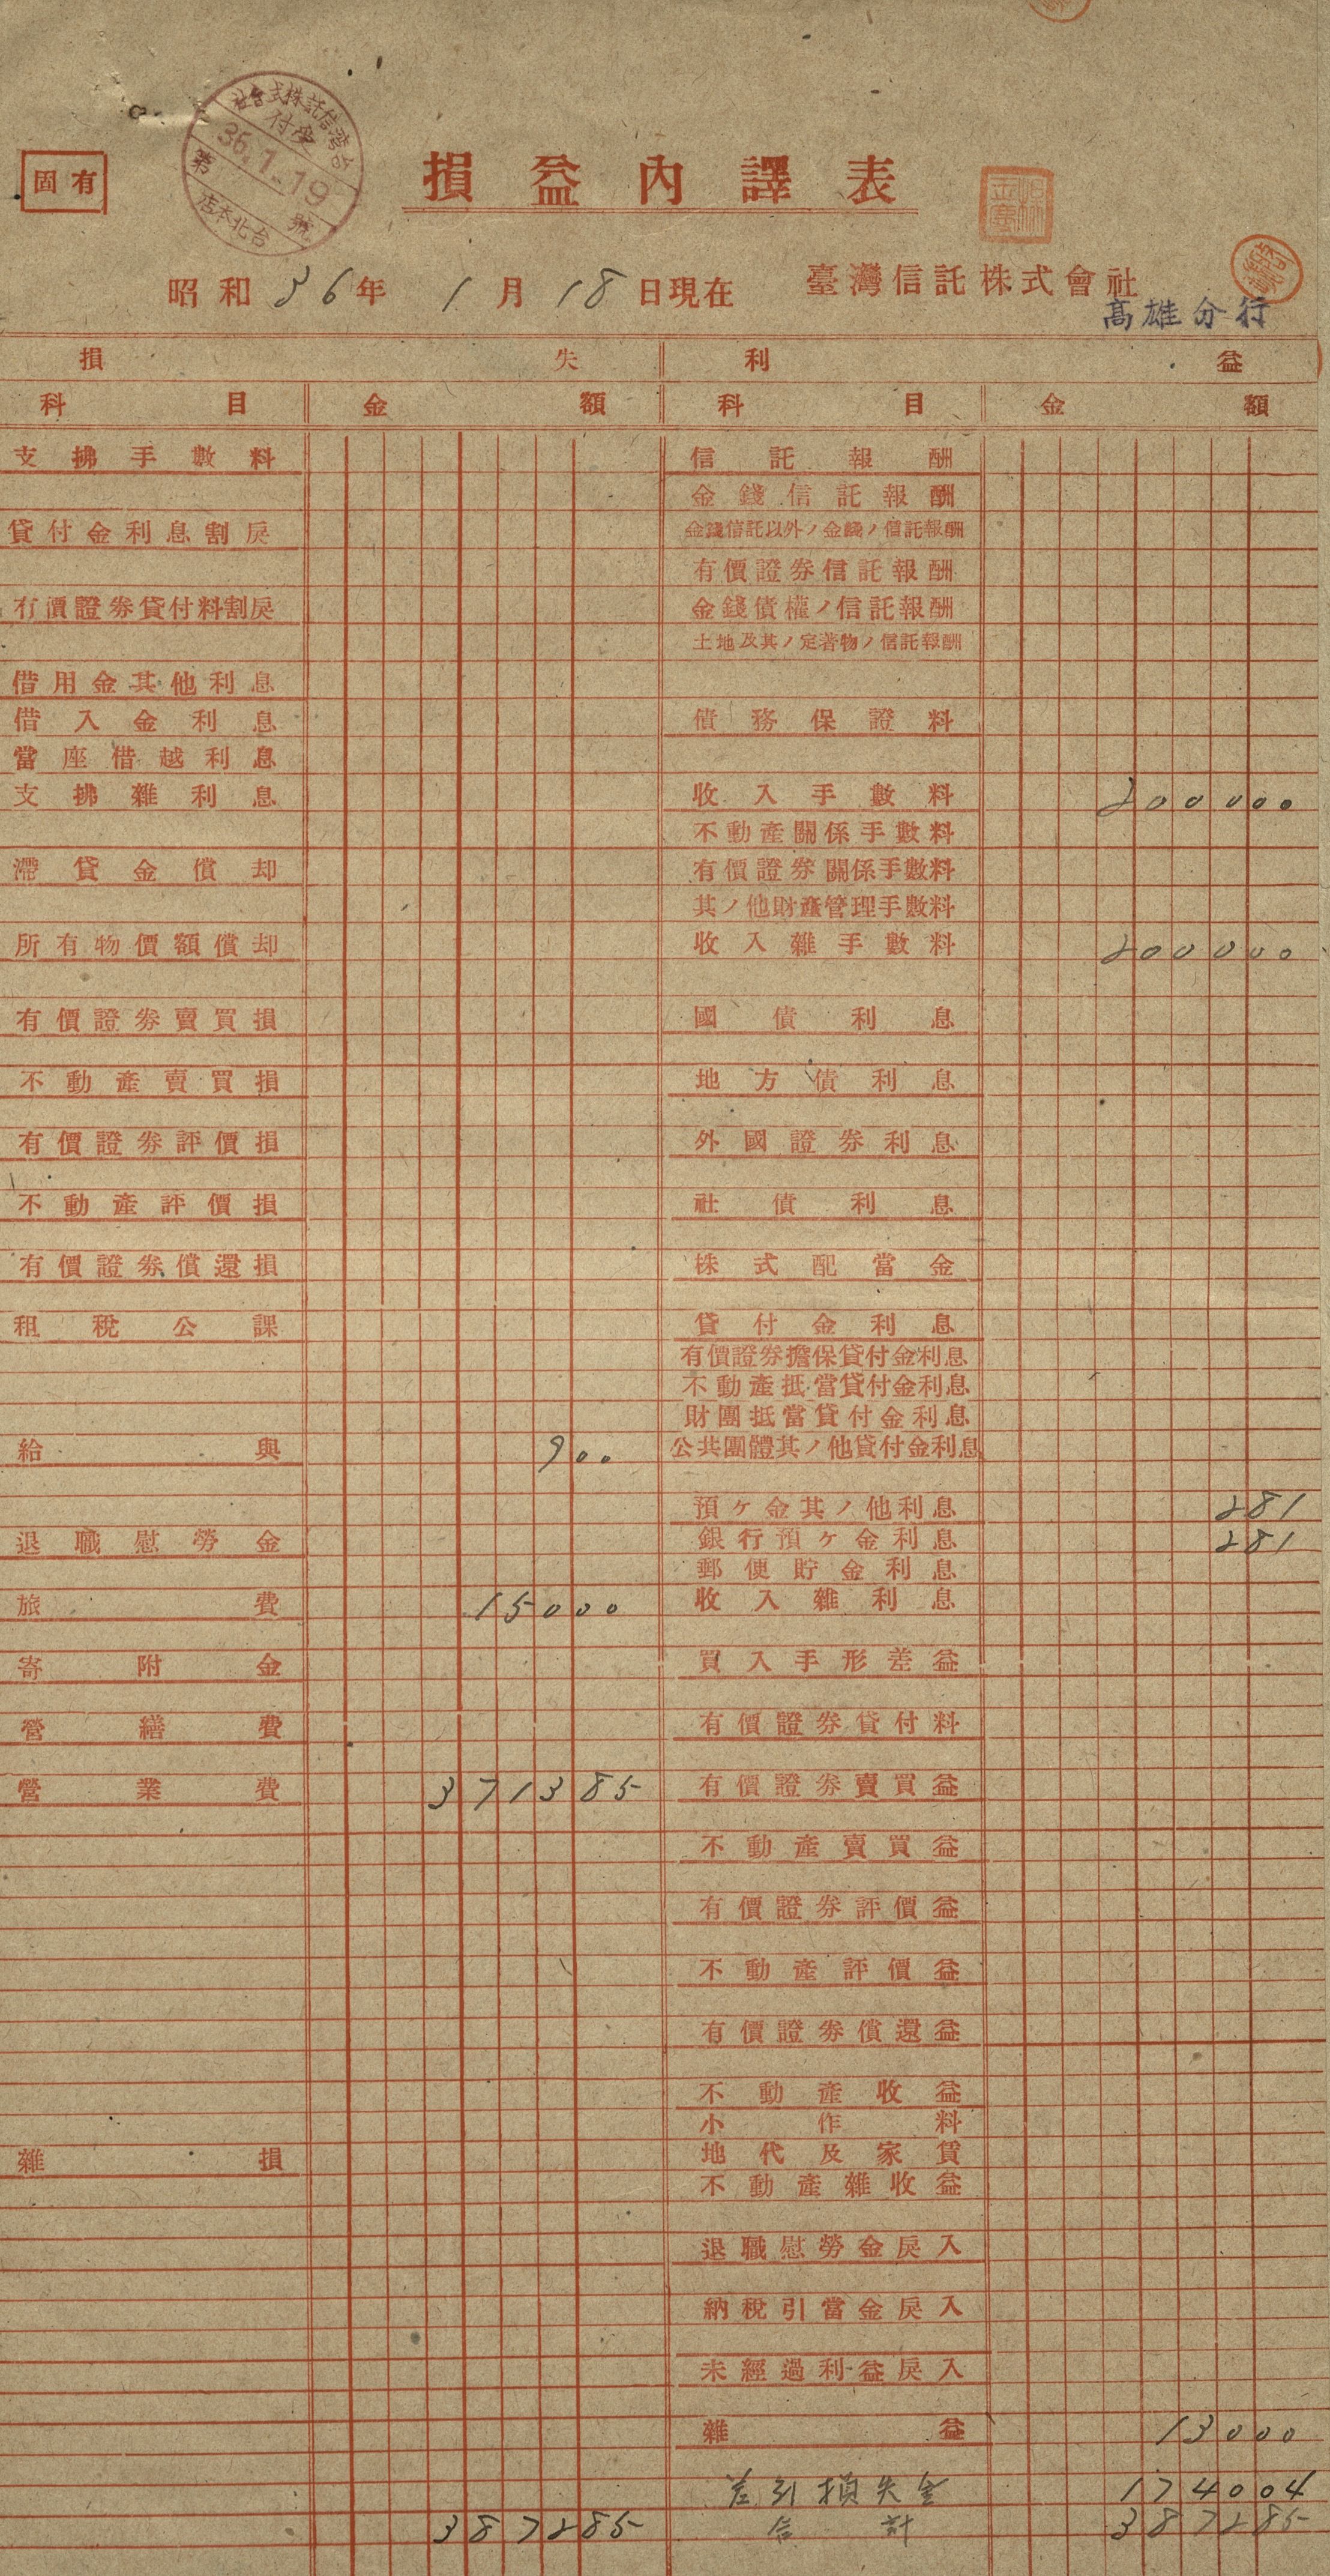 固有
台灣信託株式会社
受付
36.1.19
第 號
台北本店
損益內譯表
昭和36年1月18日現在
臺灣信託株式會社
高雄分行
損失 利益
科目 金額 科目 金額
支拂手數料 信託報酬
金錢信託報酬
貸付金利息割戾 金錢信託以外ノ金錢ノ信託報酬
有價證券信託報酬
有價證券貸付料割戾 金錢債權ノ信託報酬
土地及其ノ定著物ノ信託報酬
借用金其他利息
借入金利息 債務保證料
當座借越利息
支拂雜利息 收入手數料 200000
不動產關係手數料
滯貸金償却 有價證券關係手數料
其ノ他財產管理手數料
所有物價額償却 收入雜手數料 200000
有價證券賣買損 國債利息
不動產賣買損 地方債利息
有價證券評價損 外國證券利息
不動產評價損 社債利息
有價證券償還損 株式配當金
租稅公課 貸付金利息
有價證券擔保貸付金利息
不動產抵當貸付金利息
財團抵當貸付金利息
給與 900 公共團體其ノ他貸付金利息
預ケ金其ノ他利息 281
退職慰勞金 銀行預ケ金利息 281
郵便貯金利息
旅費 15000 收入雜利息
寄附金 買入手形差益
營繕費 有價證券貸付料
營業費 371385 有價證券賣買益
不動產賣買益
有價證券評價益
不動產評價益
有價證券償還益
不動產收益
小作料
雜損 地代及家賃
不動產雜收益
退職慰勞金戾入
納稅引當金戾入
未經過利益戾入
雜益 13000
差引損失金 174004
387285 合計 387285